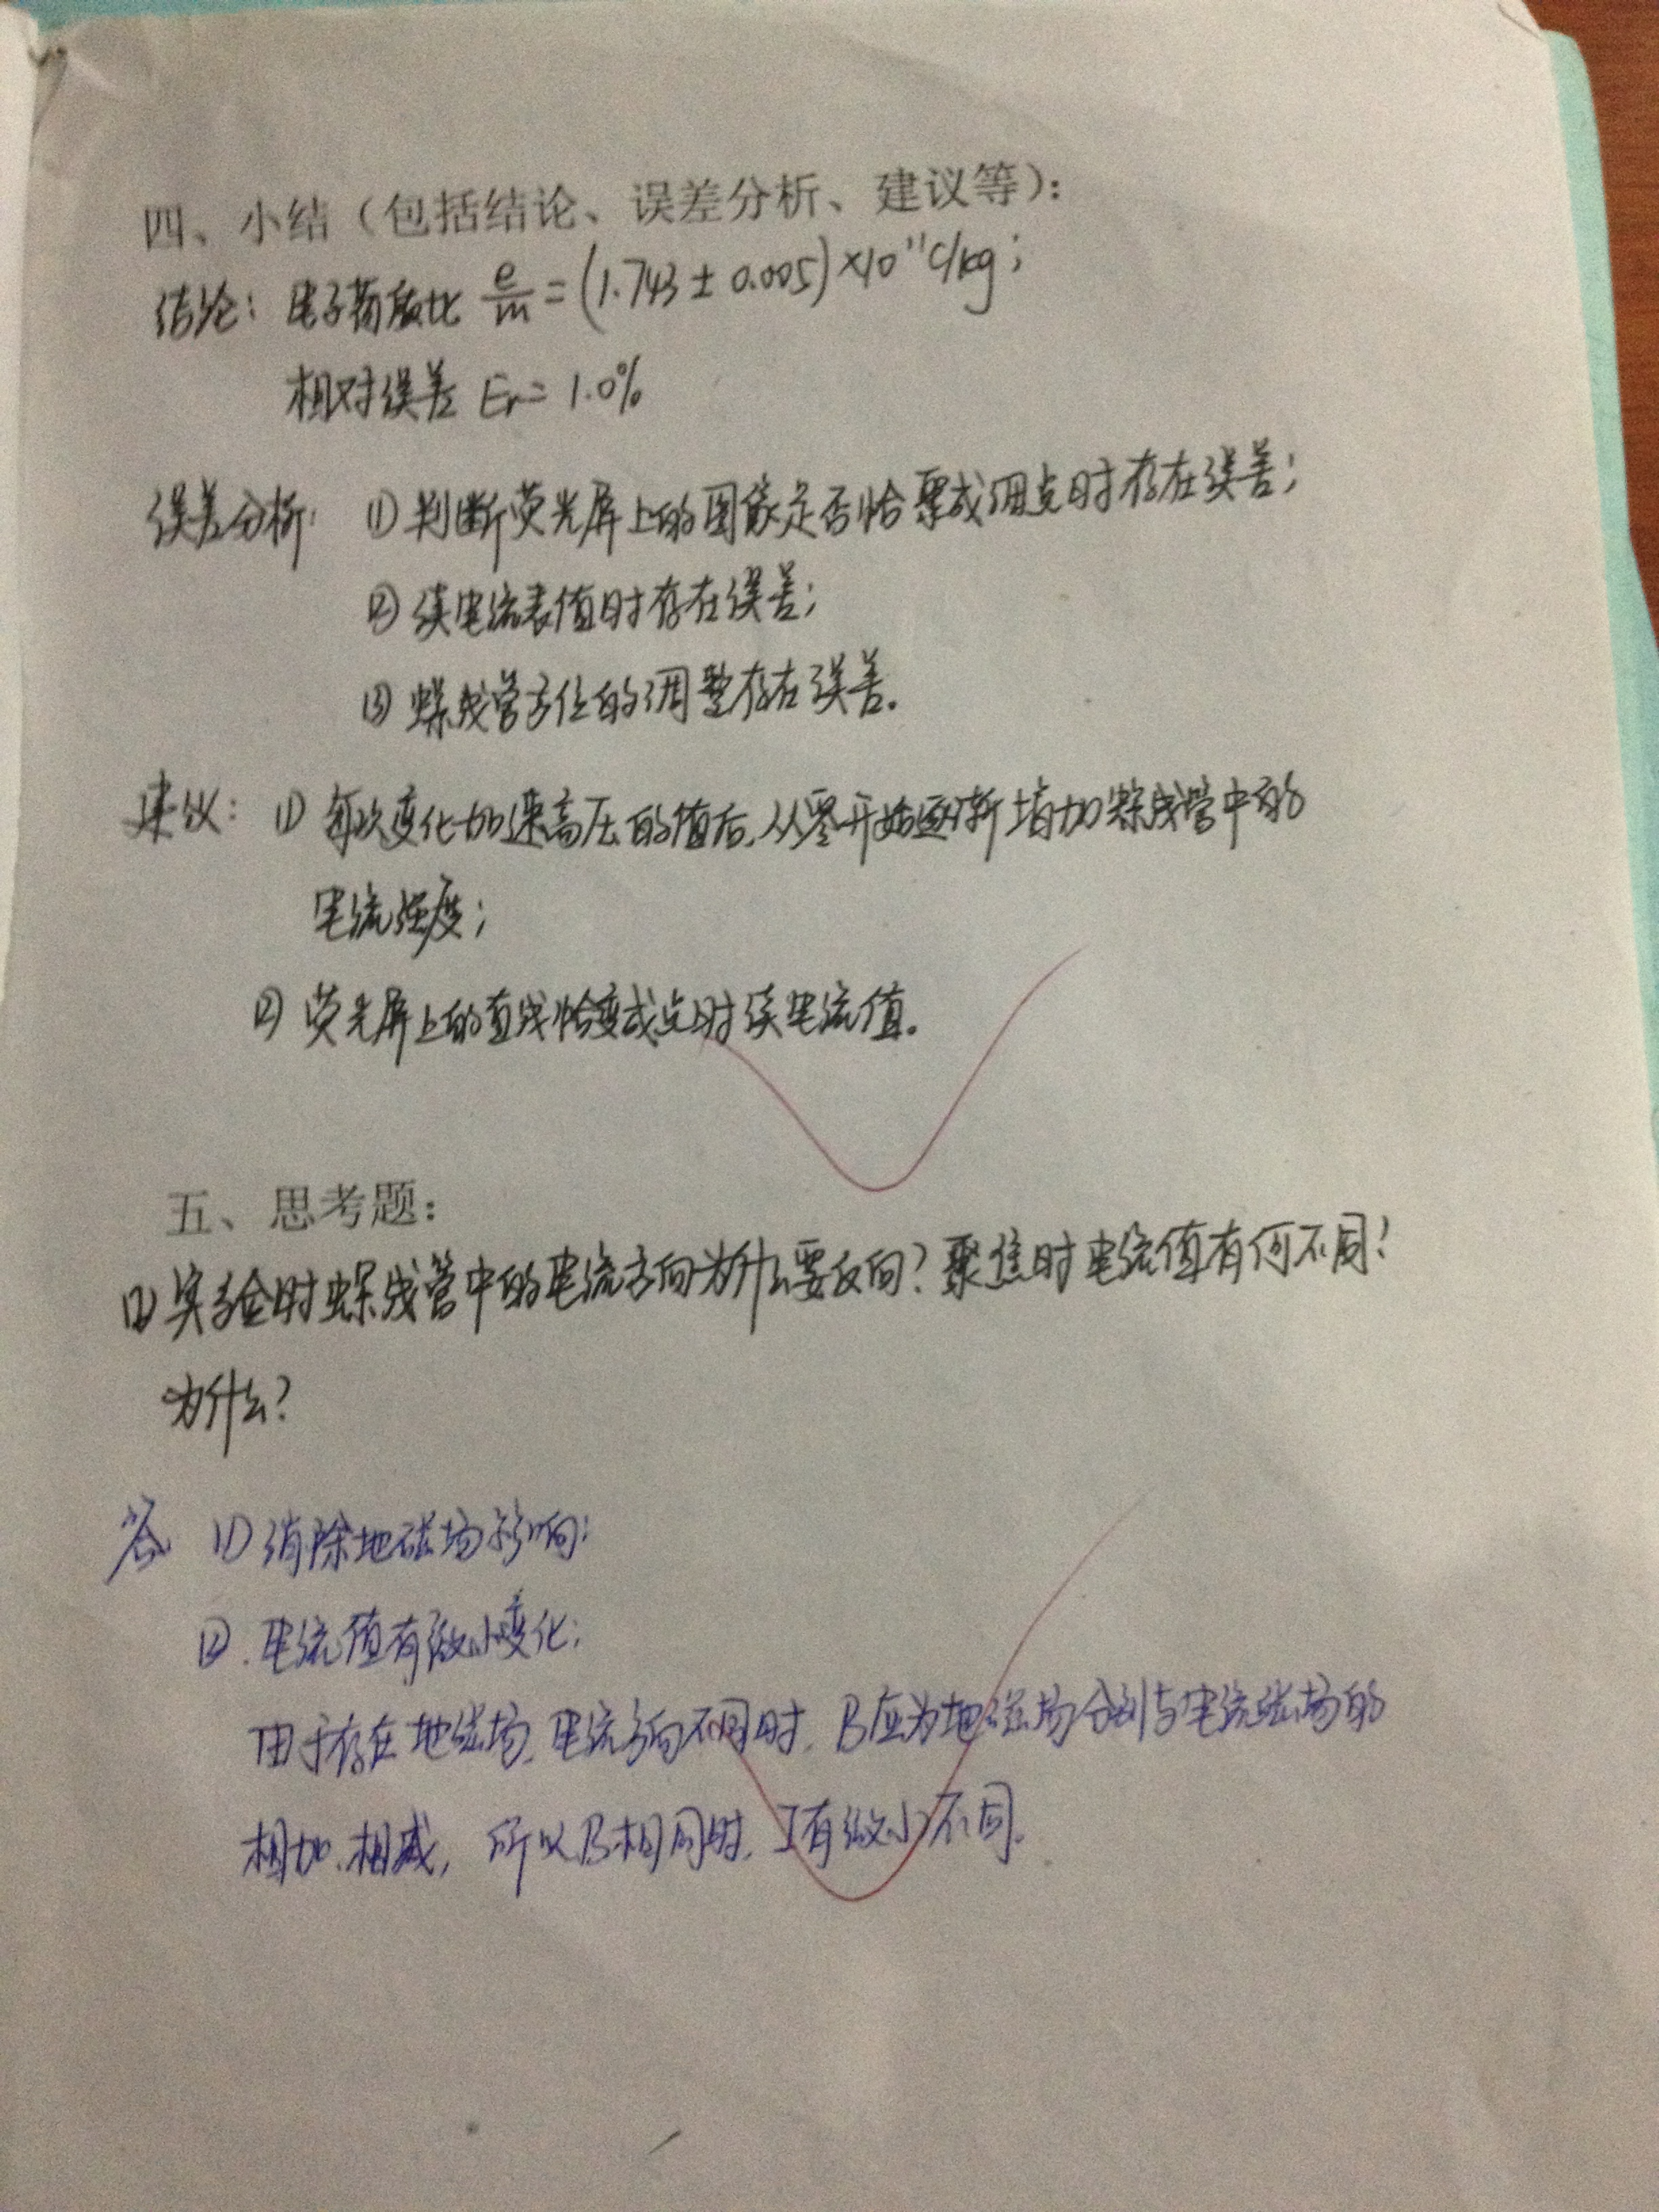 四、小结（包括结论、误差分析、建议等）：
结论：电子荷质比 e/m = (1.743 ± 0.005) ×10¹¹ C/kg；
相对误差 Er = 1.0%
误差分析：(1) 判断荧光屏上的图像是否恰聚成细点时存在误差；
(2) 读电流表值时存在误差；
(3) 螺线管方位的调整存在误差。
建议：(1) 每次变化加速高压的值后，从零开始逐渐增加螺线管中的
电流强度；
(2) 荧光屏上的直线恰变成点时读电流值。
五、思考题：
(1) 实验时螺线管中的电流方向为什么要反向？聚焦时电流值有何不同？
为什么？
答 (1) 消除地磁场影响；
(2). 电流值有微小变化；
由于存在地磁场，电流方向不同时，B应为地磁场分别与电流磁场的
相加、相减，所以B相同时，I有微小不同。